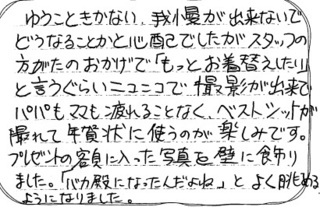 ゆうこときかない、我慢が出来ないで
どうなることかと心配でしたがスタッフの
方がたのおかげで「もっとお着替えしたい」
と言うぐらいニコニコで、撮影が出来て
パパもママも疲れることなく、ベストショットが
撮れて年賀状に使うのが楽しみです。
プレゼントの額に入った写真を壁に飾り
ました。「バカ殿になったんだよね」とよく眺める
ようになりました。